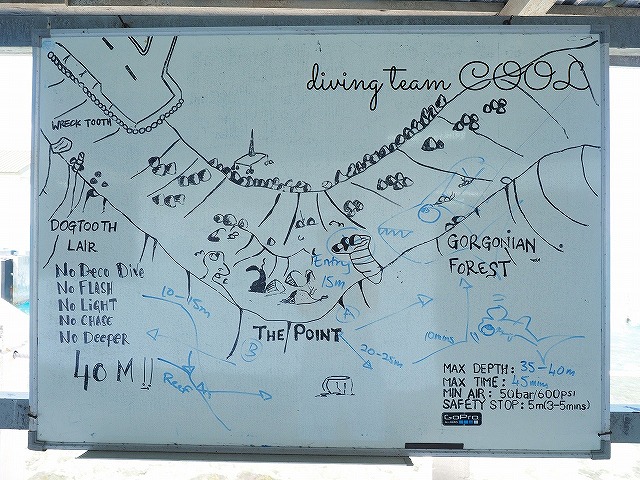 diving team COOL
WRECK TOOTH
DOGTOOTH
LAIR
No Deco Dive
No FLASH
No LIGHT
No CHASE
No DEEPER
40 M !!
10-15m
Reef
B
Entry
15m
A
THE POINT
20-25m
10mins
GORGONIAN
FOREST
MAX DEPTH: 35-40m
MAX TIME: 45mins
MIN AIR: 50bar/600psi
SAFETY STOP: 5m(3-5mins)
GoPro